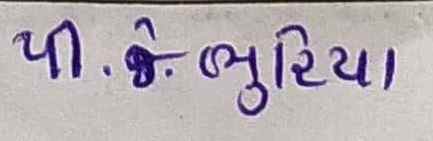 પી. કે. ભુરિયા